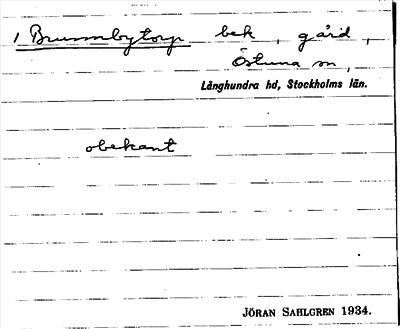 1 Brunnbytorp bek, gård,
Östuna sn,
Långhundra hd, Stockholms län.
obekant
JÖRAN SAHLGREN 1934.